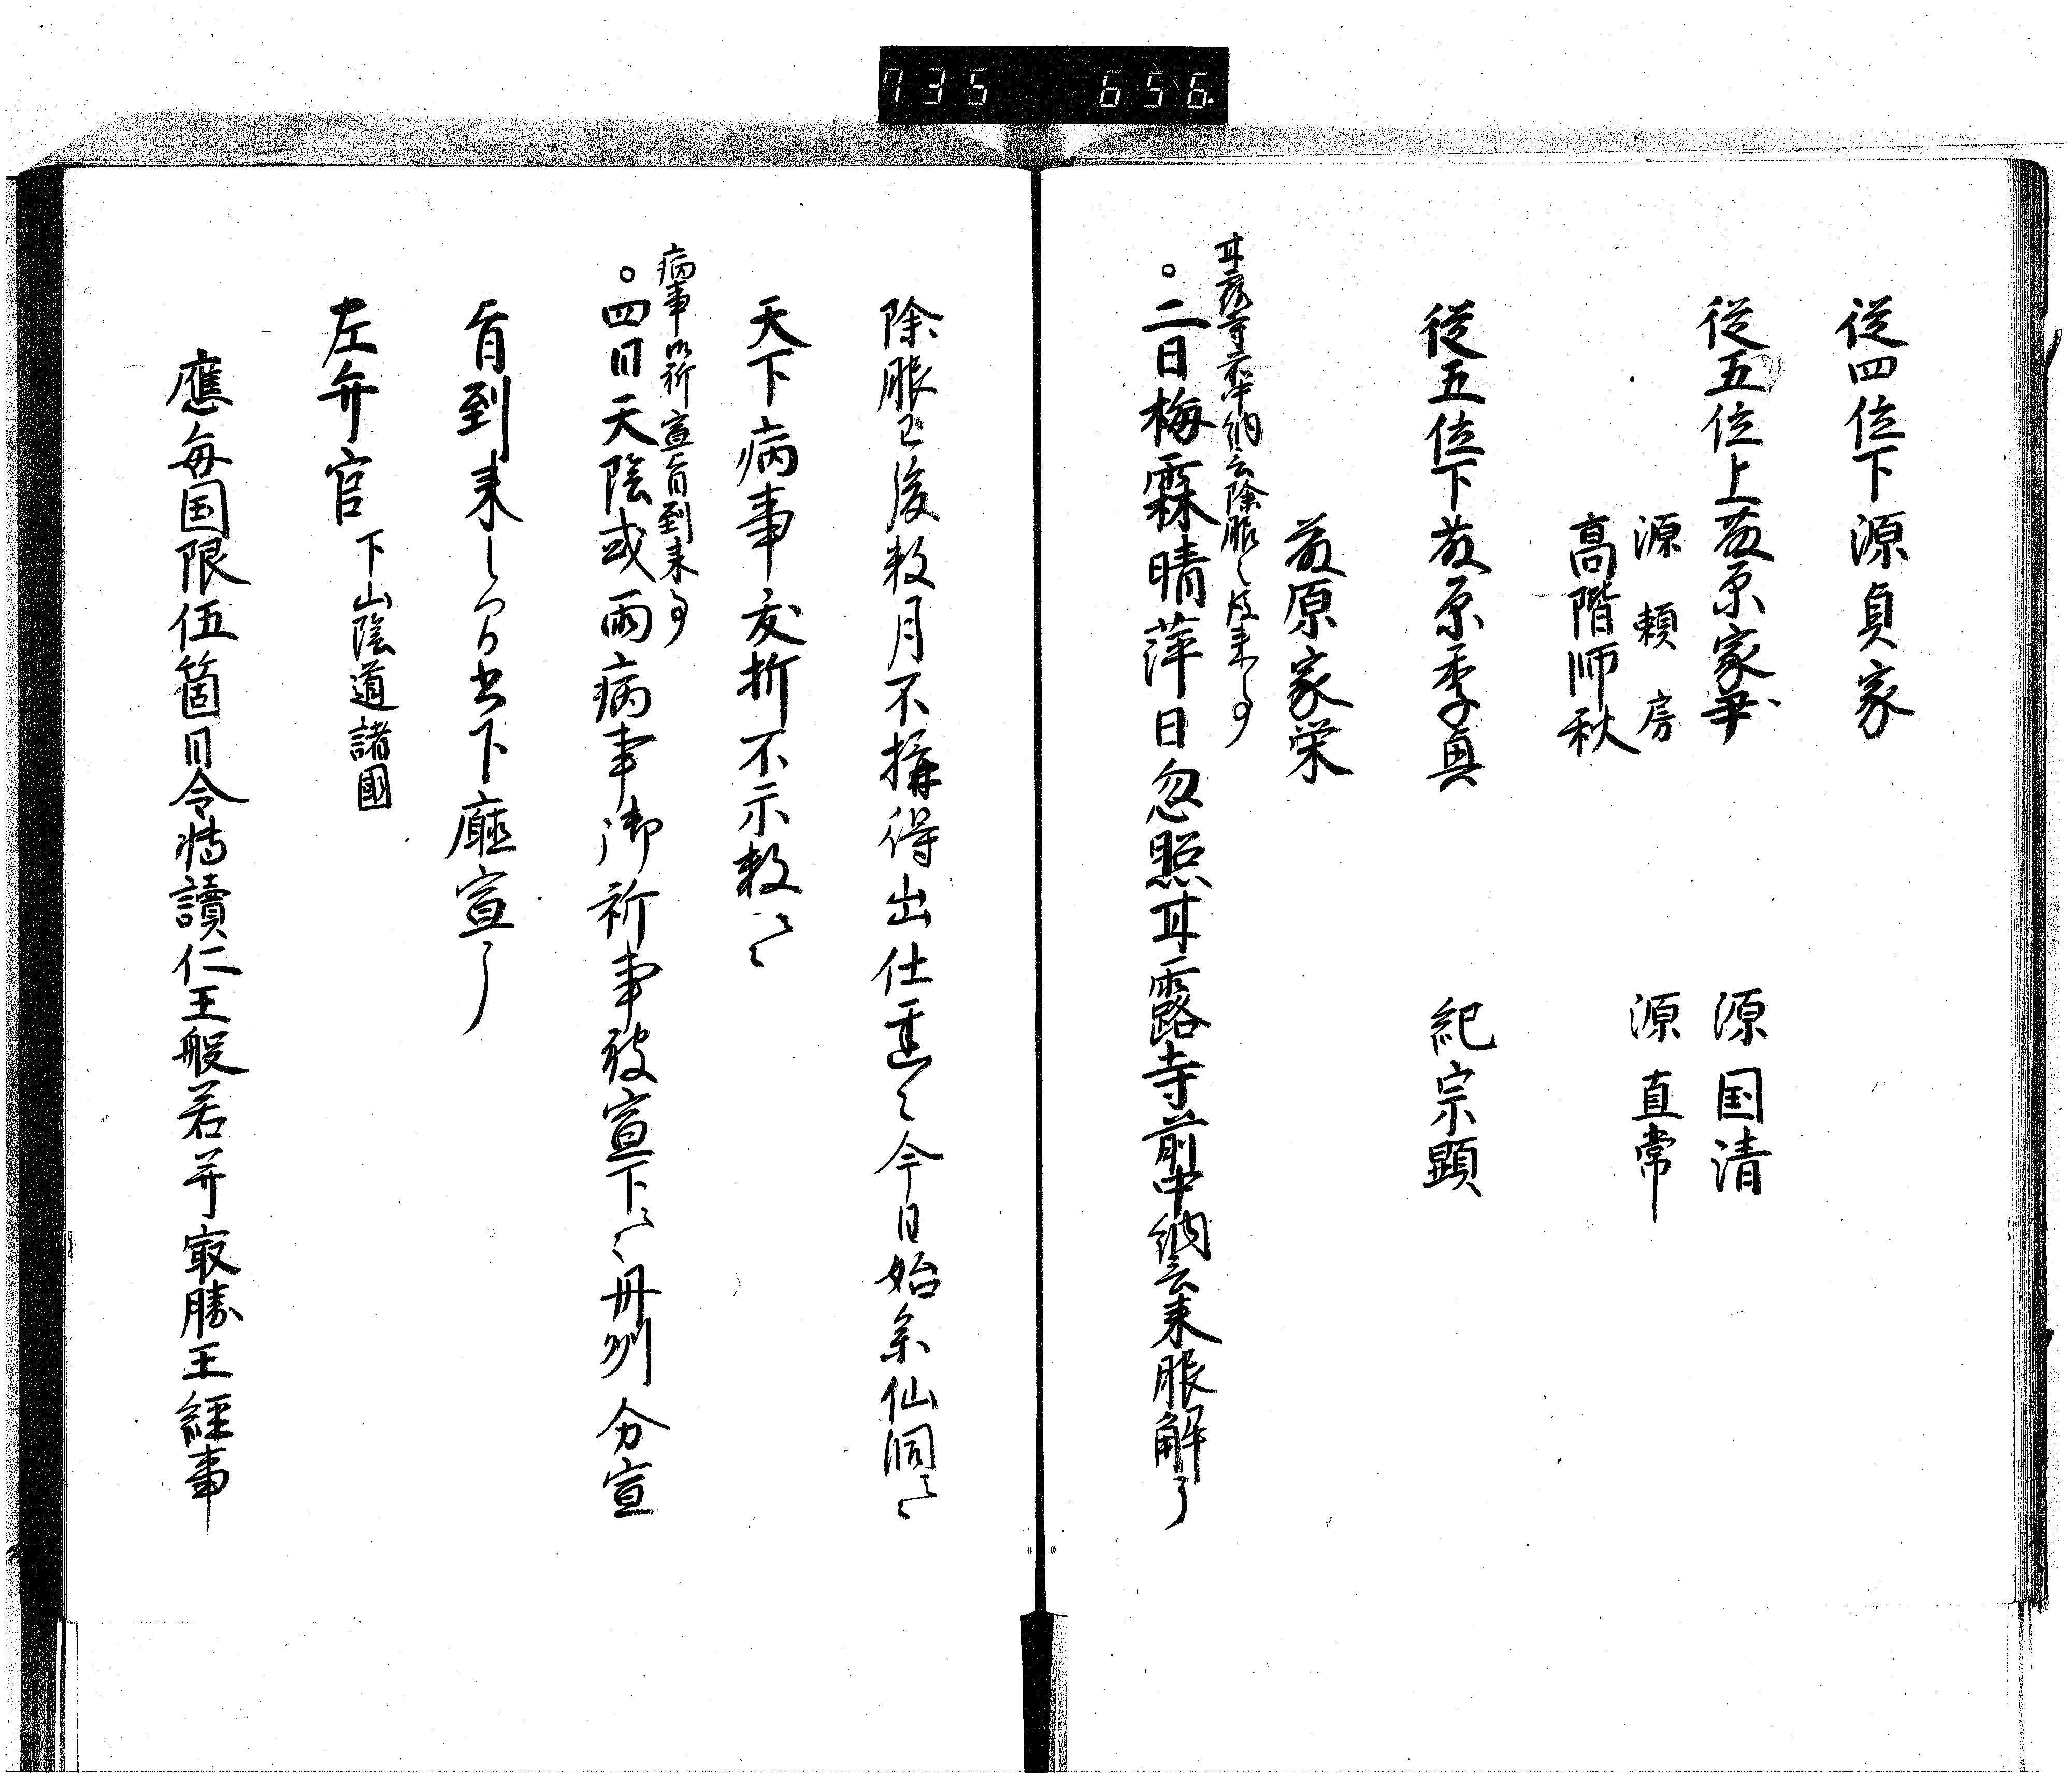 735 656
従四位下源貞家
従五位上藤原家尹 源国清
源頼房 源直常
高階師秋
従五位下藤原季興 紀宗顕
藤原家栄
甘露寺前中納言除服之後来事
。二日梅霖晴萍日忽照甘露寺前中納言来服解了
除服已後数月不構得出仕
今日始参仙洞云々
天下病事夭折不示数云々
病事御祈宣旨到来事
。四日天陰或雨病事御祈事被宣下云々丹州分宣
旨到来之間書下庁宣了
左弁官下山陰道諸国
應毎国限伍箇日令転読仁王般若并最勝王経事